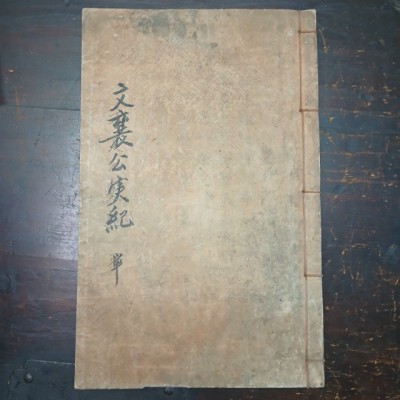 文襄公実紀 単